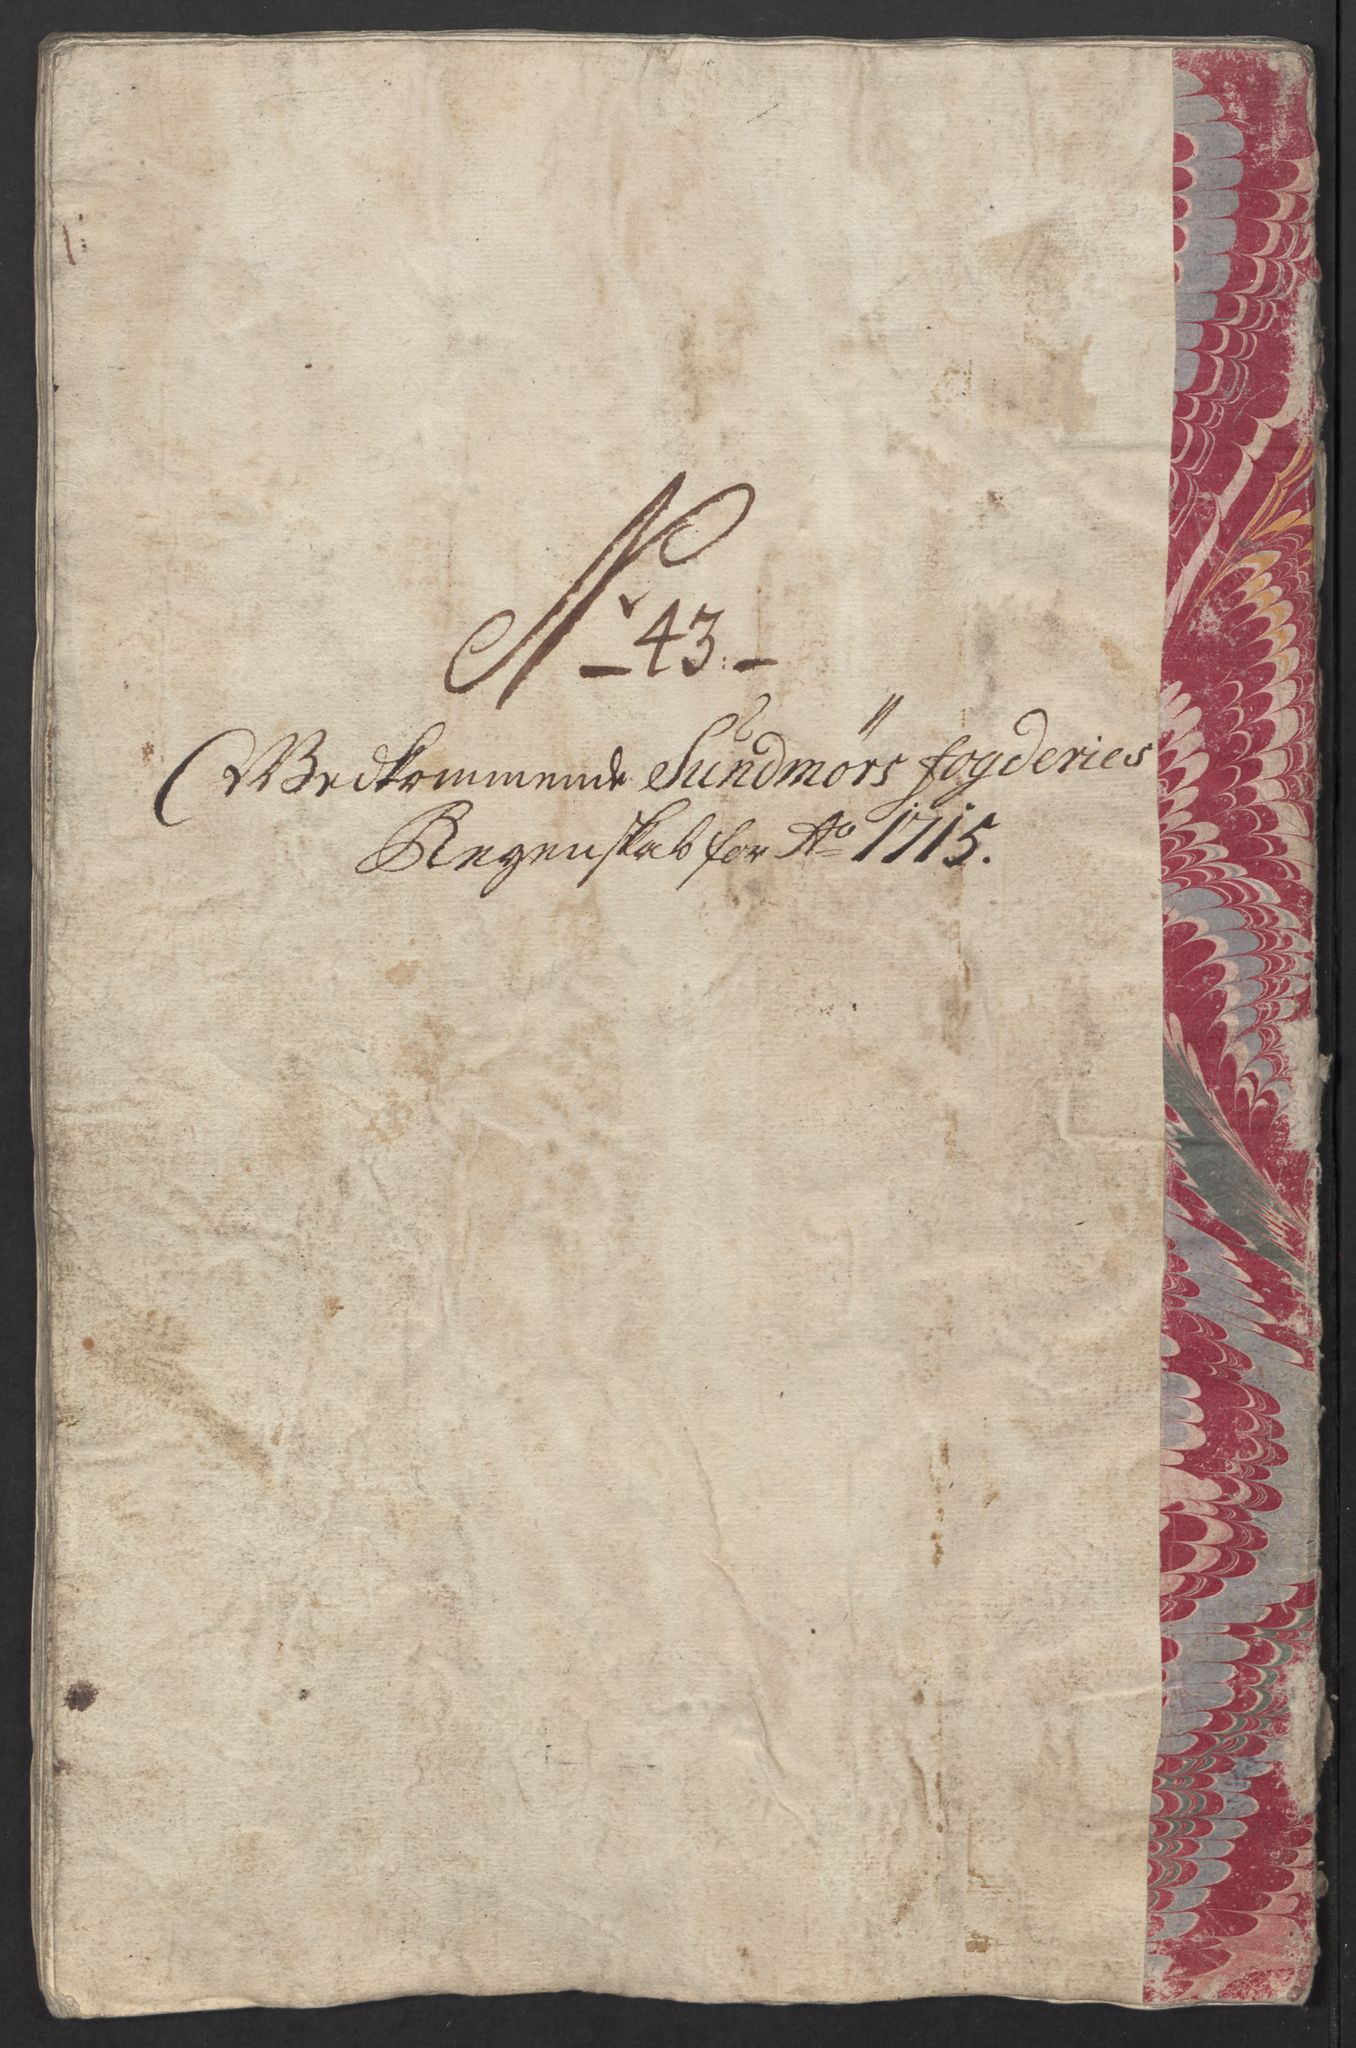 No 43.
Vedkommende Sundmørs fogderies
Regenskab for Ao 1715.